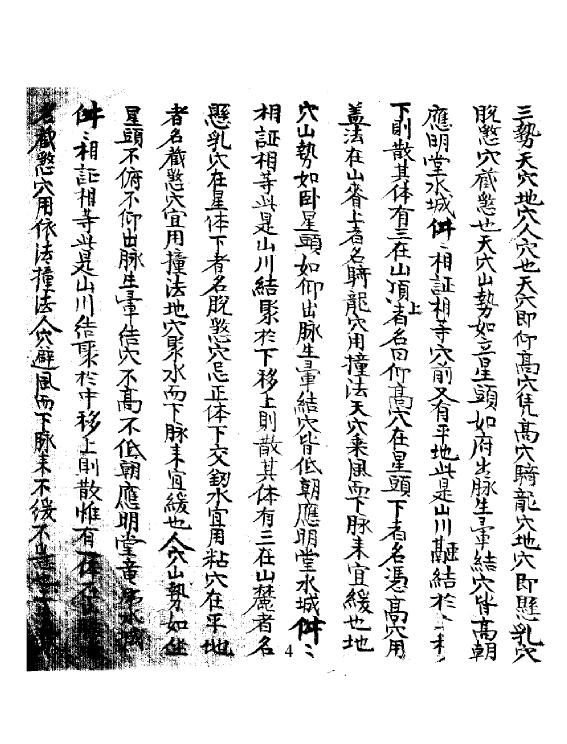 三勢天穴地穴人穴也天穴即仰高穴凭高穴騎龍穴地穴即懸乳穴
脫慜穴藏慜也天穴山勢如立星頭如府出脉生暈結穴皆高朝
應明堂水城件〻相証相等穴前又有平地此是山川融結於上移
下則散其体有三在山頂上者名曰仰高穴在星頭下者名凴高穴用
盖法在山脊上者名騎龍穴用撞法天穴乘風而下脉来宜緩也地
穴山勢如卧星頭如仰出脉生暈結穴皆低朝應明堂水城件〻
相証相等此是山川結聚於下移上則散其体有三在山麓者名
懸乳穴在星体下者名脫慜穴忌正体下交釼水宜用粘穴在平地
者名藏慜穴宜用撞法地穴聚水而下脉来宜緩也人穴山勢如坐
星頭不俯不仰出脉生暈結穴不高不低朝應明堂竜虎水城
件〻相証相等此是山川结聚於中移上則散惟有一体
名藏慜穴用依法撞法人穴避風而下脉来不緩不
4